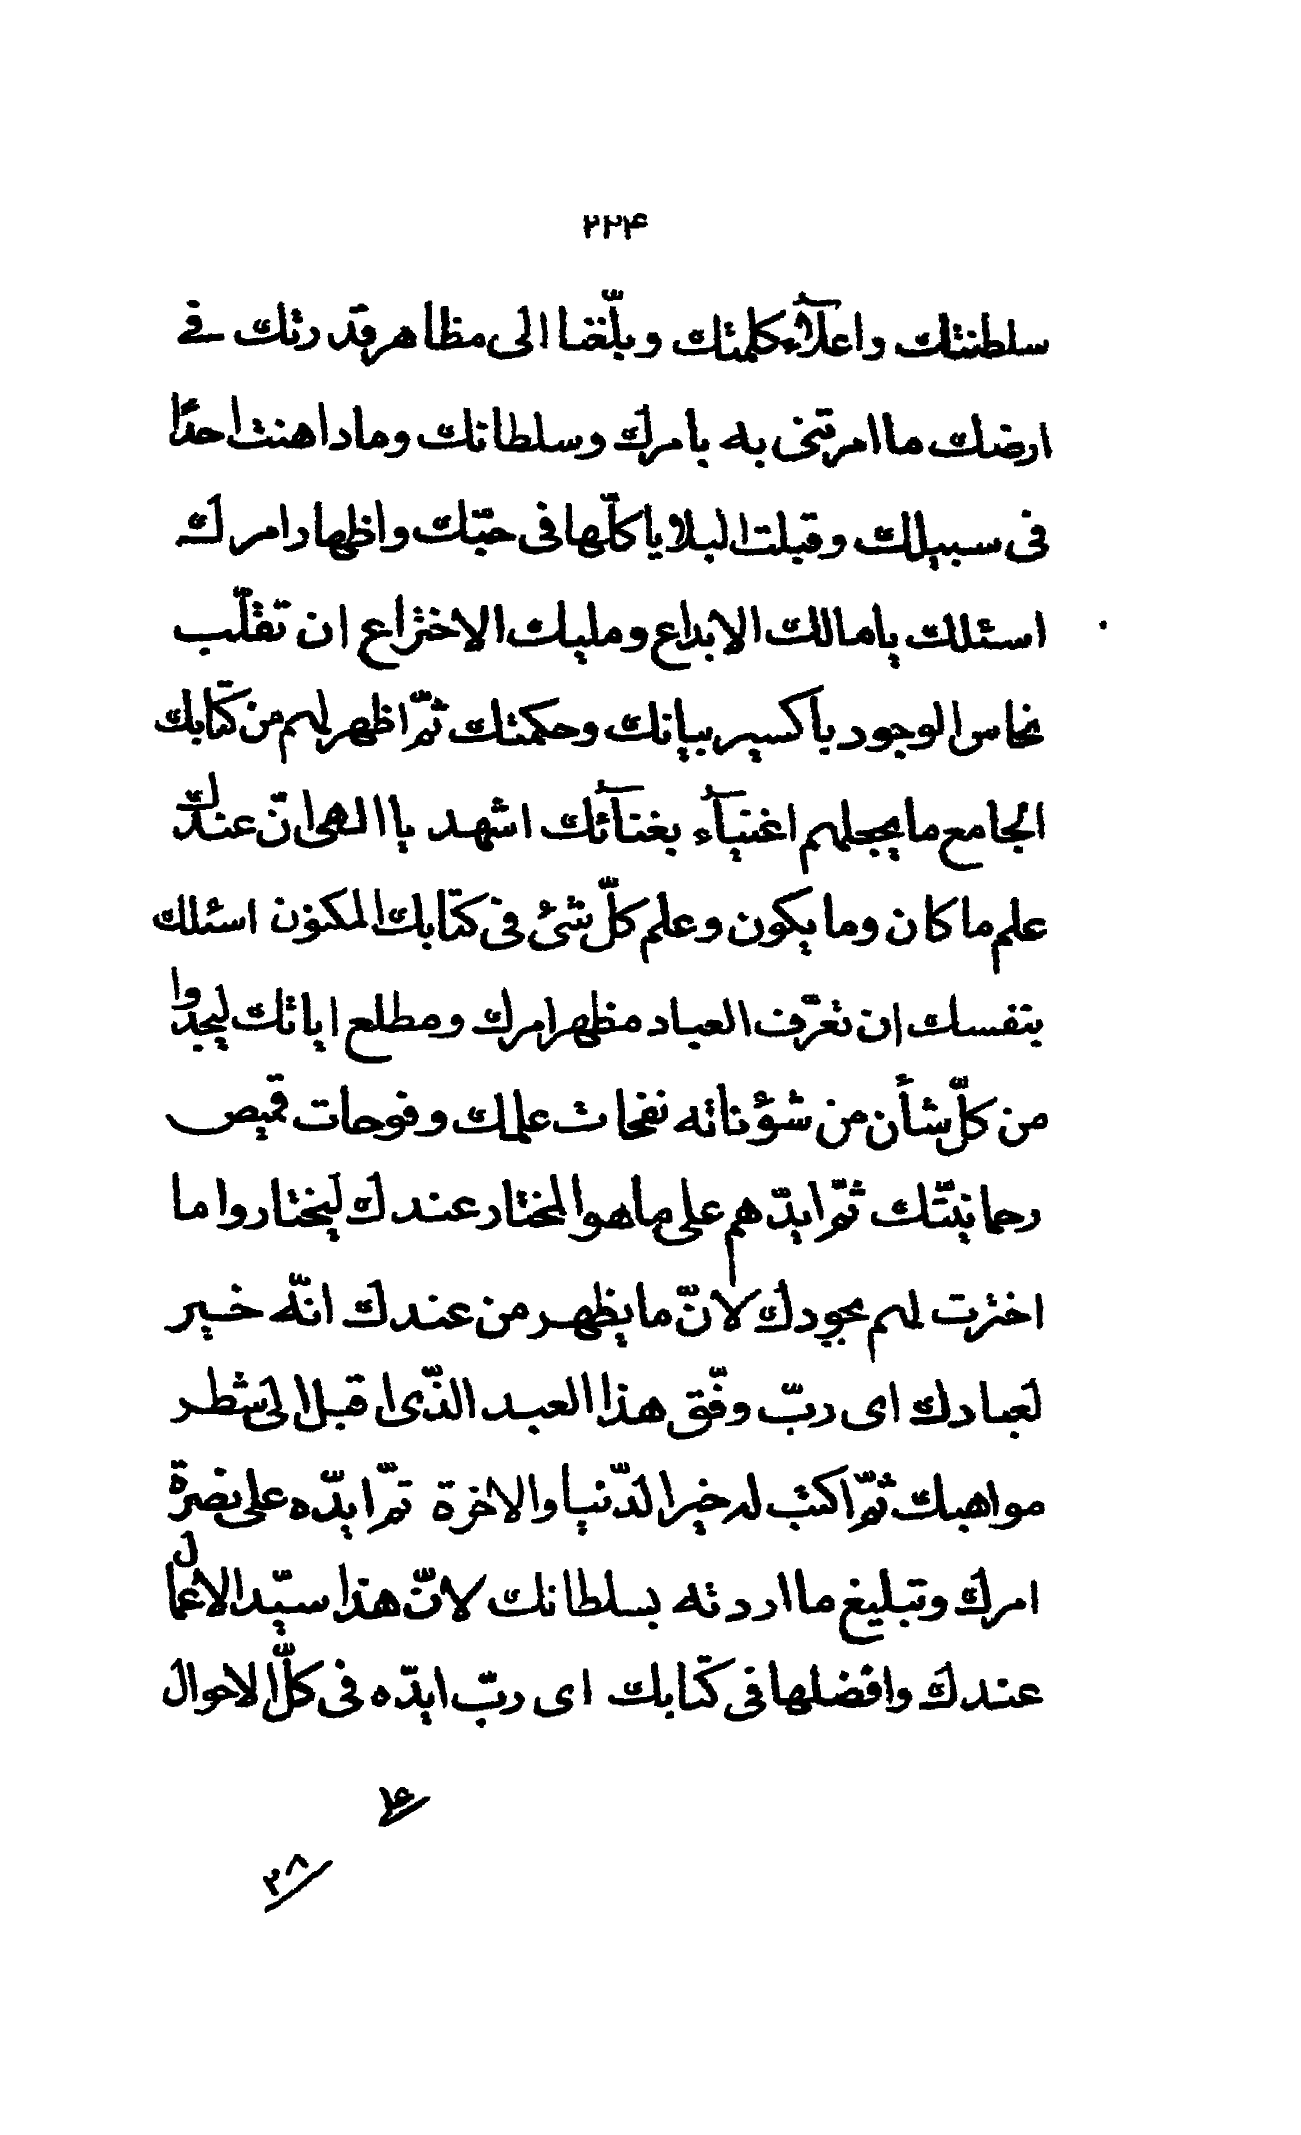 ۲۲۴
سلطنتك واعلآء كلمتك وبلّغنا الى مظاهر قدرتك فى
ارضك ما امرتنى به بامرك وسلطانك وما داهنت احدًا
فى سبيلك وقبلت البلايا كلّها فى حبّك واظهار امرك
اسئلك يا مالك الابداع ومليك الاختراع ان تقلّب
نحاس الوجود باكسير بيانك وحكمتك ثمّ اظهر لهم من كتابك
الجامع ما يجعلهم اغنيآء بغنآئك اشهد يا الهى انّ عندك
علم ما كان وما يكون وعلم كلّ شىء فى كتابك المكنون اسئلك
بنفسك ان تعرّف العباد مظهر امرك ومطلع اياتك ليجدوا
من كلّ شأن من شؤناته نفحات علمك وفوحات قميص
رحمانيّتك ثمّ ايّدهم على ما هو المختار عندك ليختاروا ما
اخترت لهم بجودك لانّ ما يظهر من عندك انّه خير
لعبادك اى ربّ وفّق هذا العبد الّذى اقبل الى شطر
مواهبك ثمّ اكتب له خير الدّنيا والاخرة ثمّ ايّده على نصرة
امرك وتبليغ ما اردته بسلطانك لانّ هذا سيّد الاعمال
عندك وافضلها فى كتابك اى ربّ ايّده فى كلّ الاحوال
۲۸